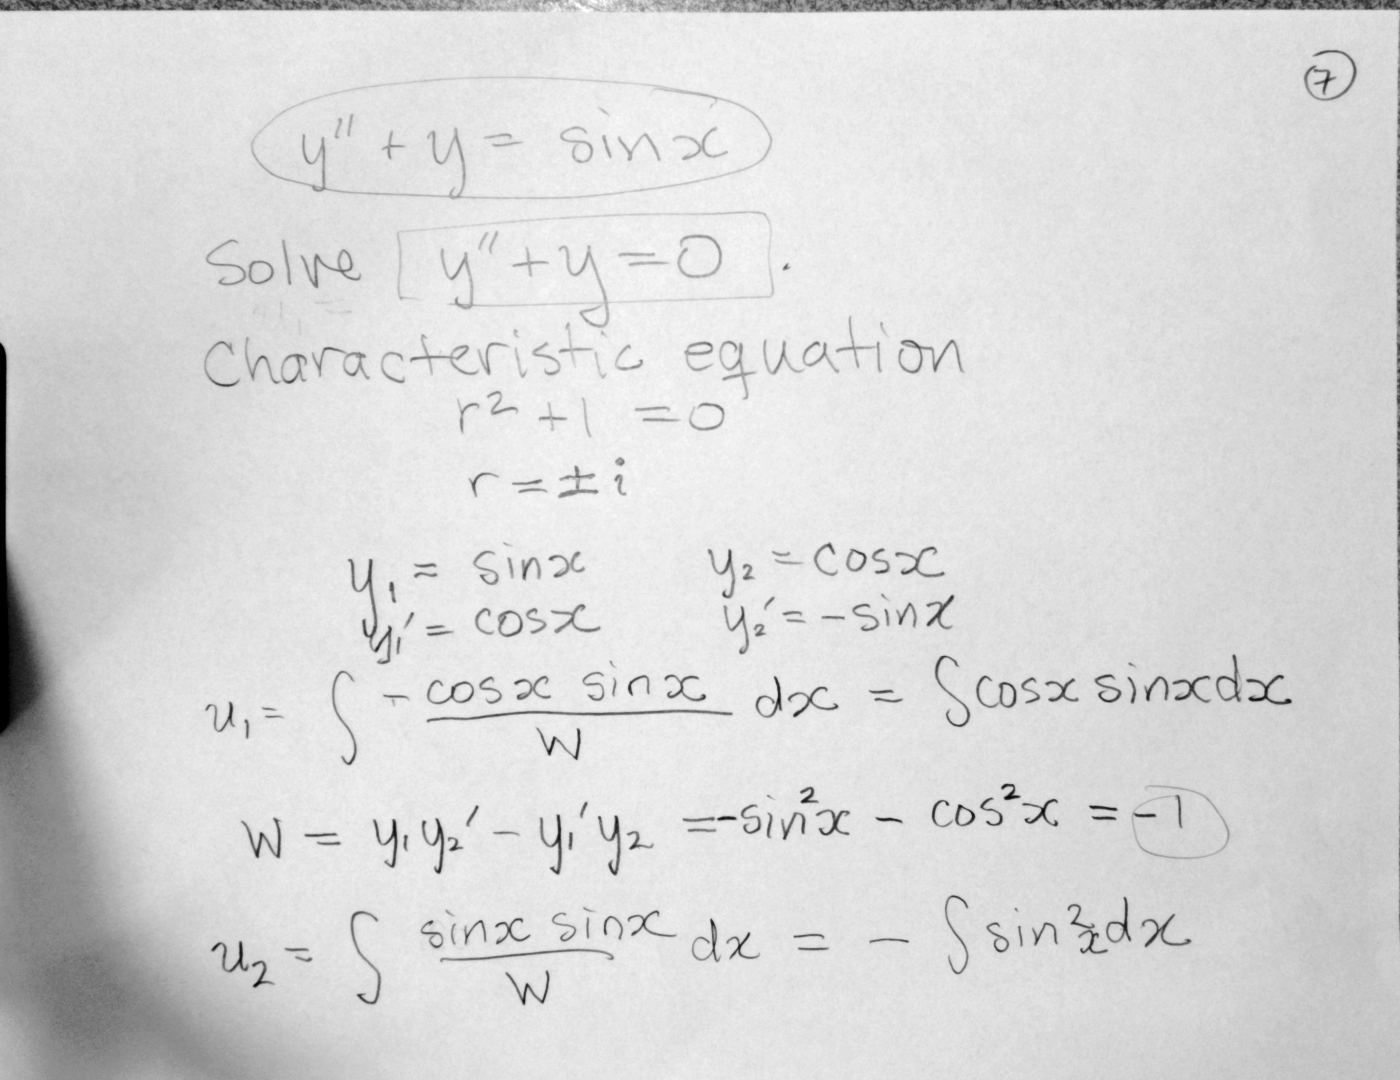 7
y'' + y = sinx
Solve y'' + y = 0 .
Characteristic equation
r² + 1 = 0
r = ± i
y₁ = sinx y₂ = cosx
y₁' = cosx y₂' = -sinx
u₁ = ∫ -cosx sinx / W dx = ∫ cosx sinx dx
W = y₁y₂' - y₁'y₂ = -sin²x - cos²x = -1
u₂ = ∫ sinx sinx / W dx = - ∫ sin²x dx